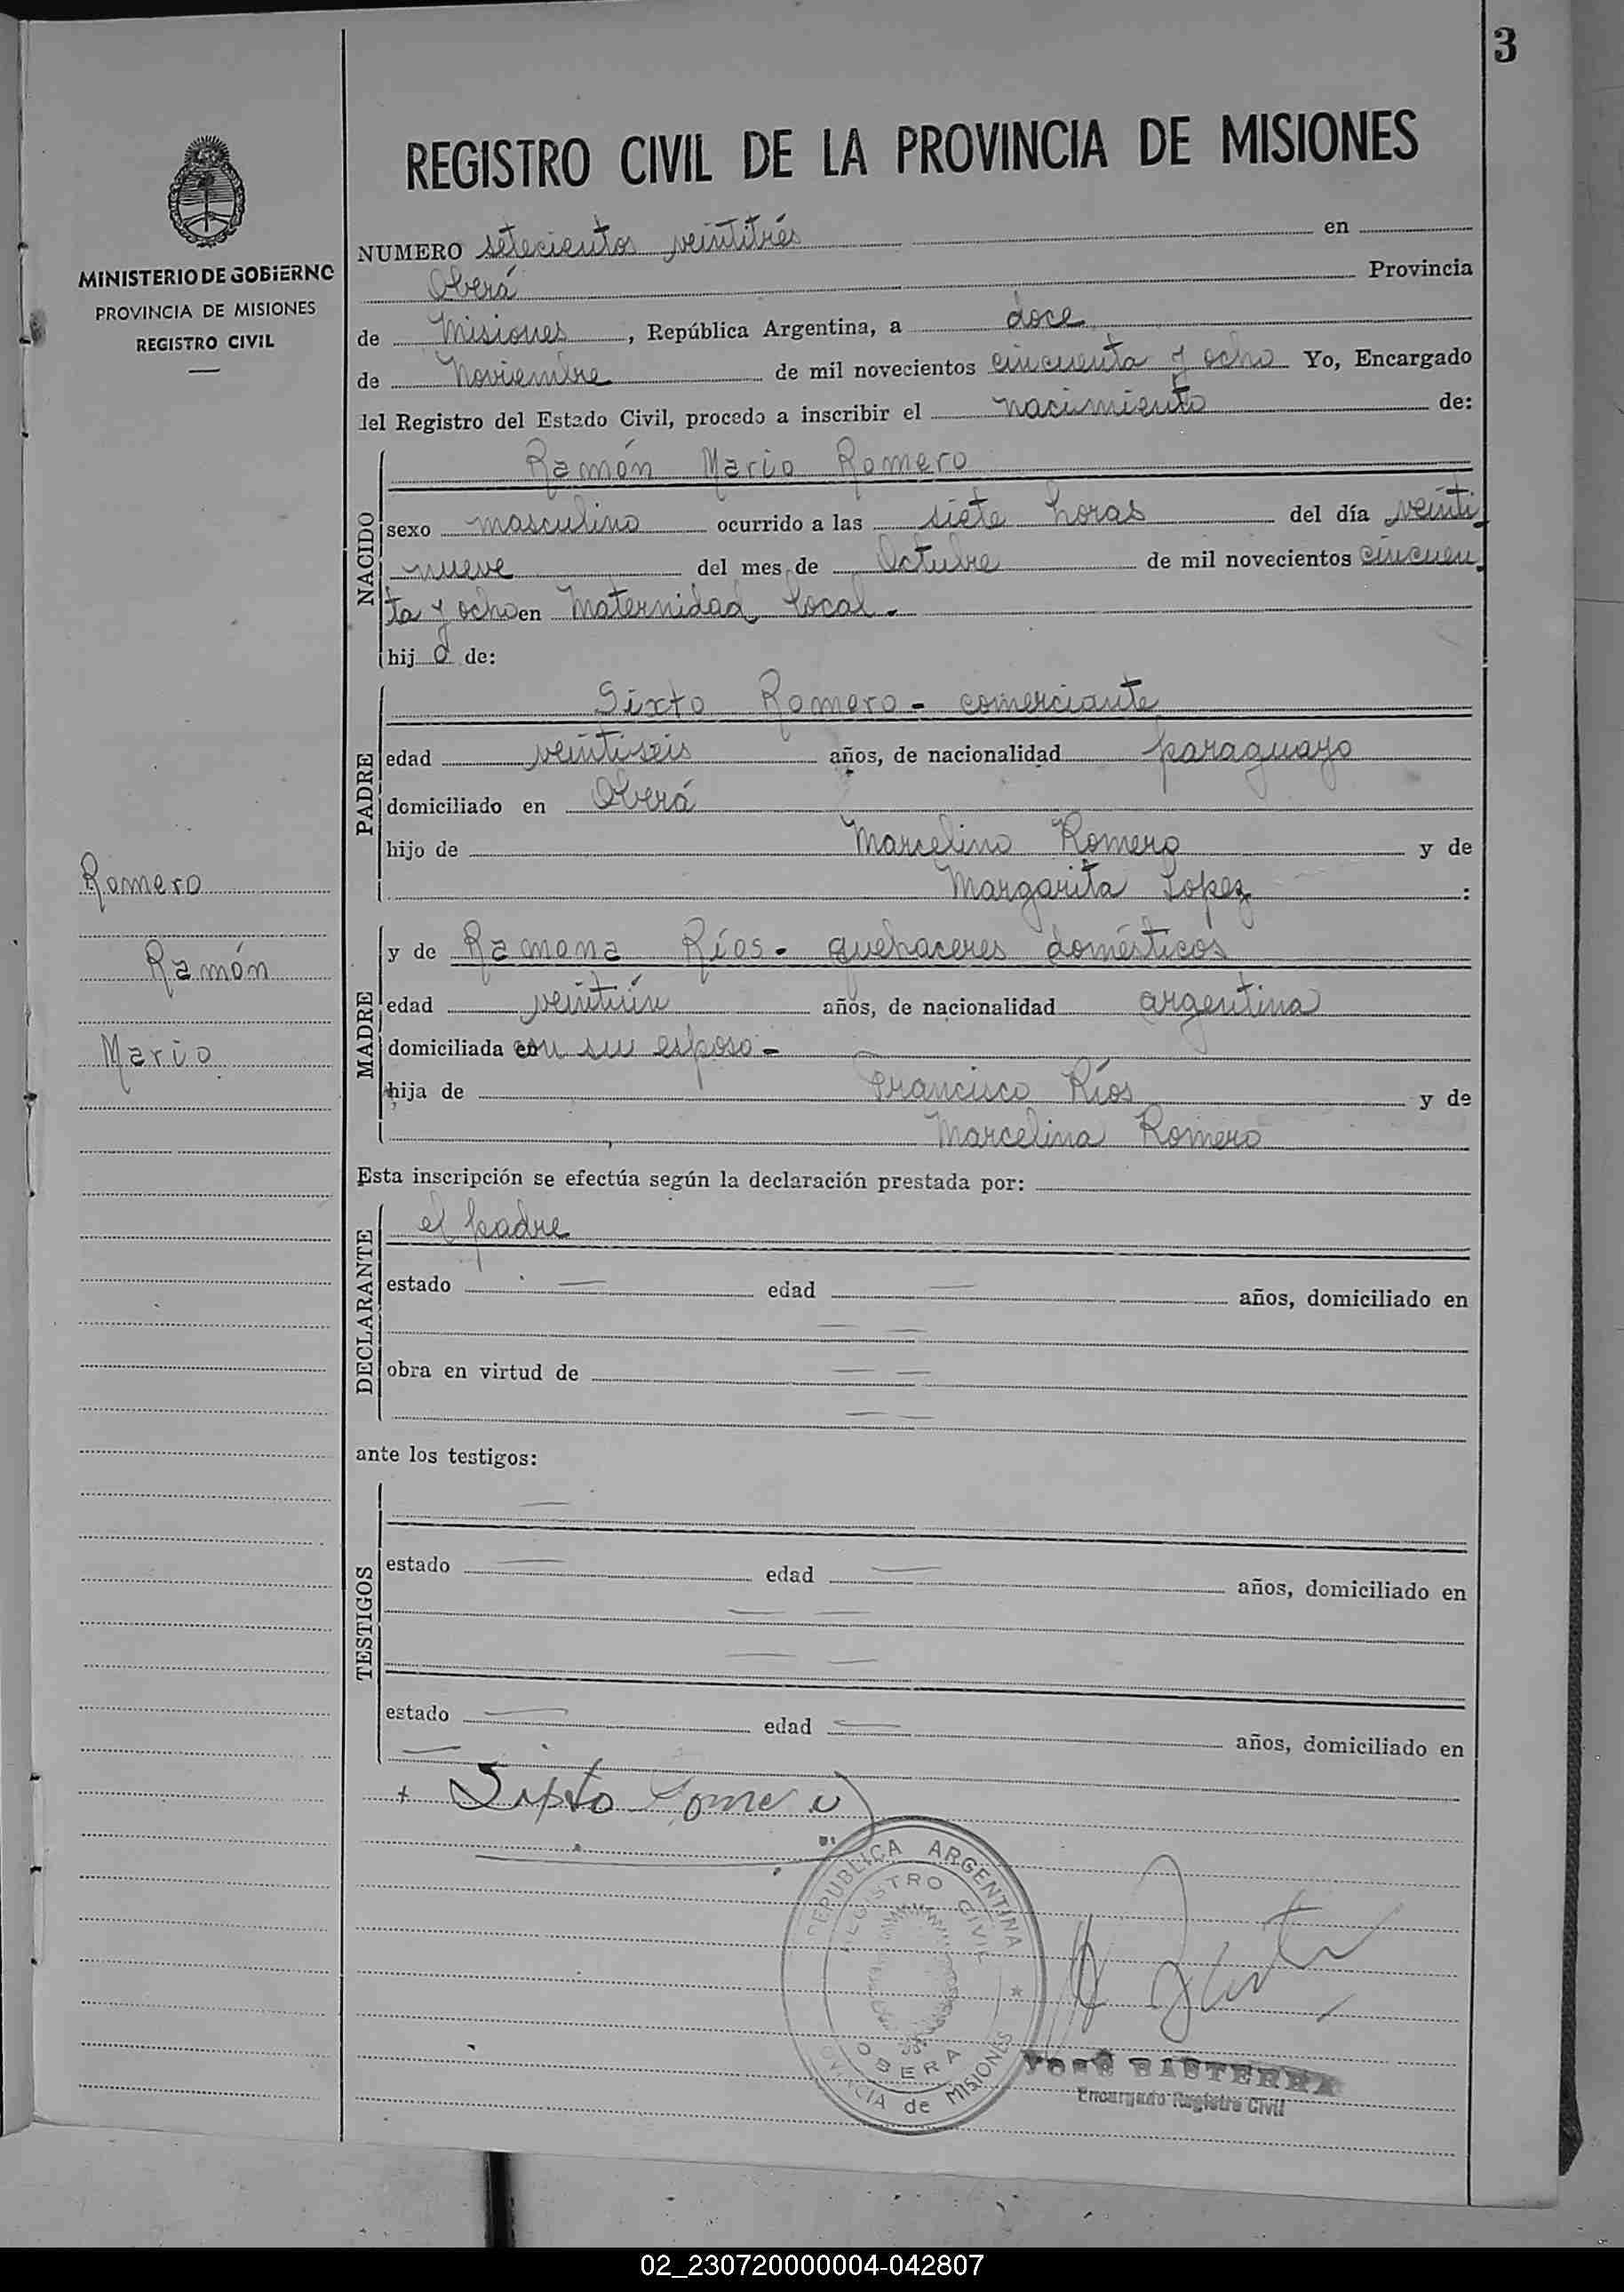 3
REGISTRO CIVIL DE LA PROVINCIA DE MISIONES
MINISTERIO DE GOBIERNO
PROVINCIA DE MISIONES
REGISTRO CIVIL
NUMERO setecientos veintitrés en
Oberá Provincia
de Misiones, República Argentina, a doce
de Noviembre de mil novecientos cincuenta y ocho Yo, Encargado
del Registro del Estado Civil, procedo a inscribir el nacimiento de:
NACIDO
Ramón Mario Romero
sexo masculino ocurrido a las siete horas del día veinti
nueve del mes de Octubre de mil novecientos cincuen
ta y ocho en Maternidad local.
hij o de:
PADRE
Sixto Romero - comerciante
edad veintiseis años, de nacionalidad paraguayo
domiciliado en Oberá
hijo de Marcelino Romero y de
Margarita Lopez :
Romero
Ramón
Mario
MADRE
y de Ramona Ríos - quehaceres domésticos
edad veintiún años, de nacionalidad argentina
domiciliada en con su esposo -
hija de Francisco Ríos y de
Marcelina Romero
Esta inscripción se efectúa según la declaración prestada por:
DECLARANTE
el padre
estado — edad — años, domiciliado en
— —
obra en virtud de — —
— —
ante los testigos:
TESTIGOS
—
estado — edad — años, domiciliado en
— —
— —
estado — edad — años, domiciliado en
—
+ Sixto Romero
REPUBLICA ARGENTINA
REGISTRO CIVIL
OBERA
PROVINCIA de MISIONES
JOSÉ BASTERRA
Encargado Registro Civil
02_230720000004-042807